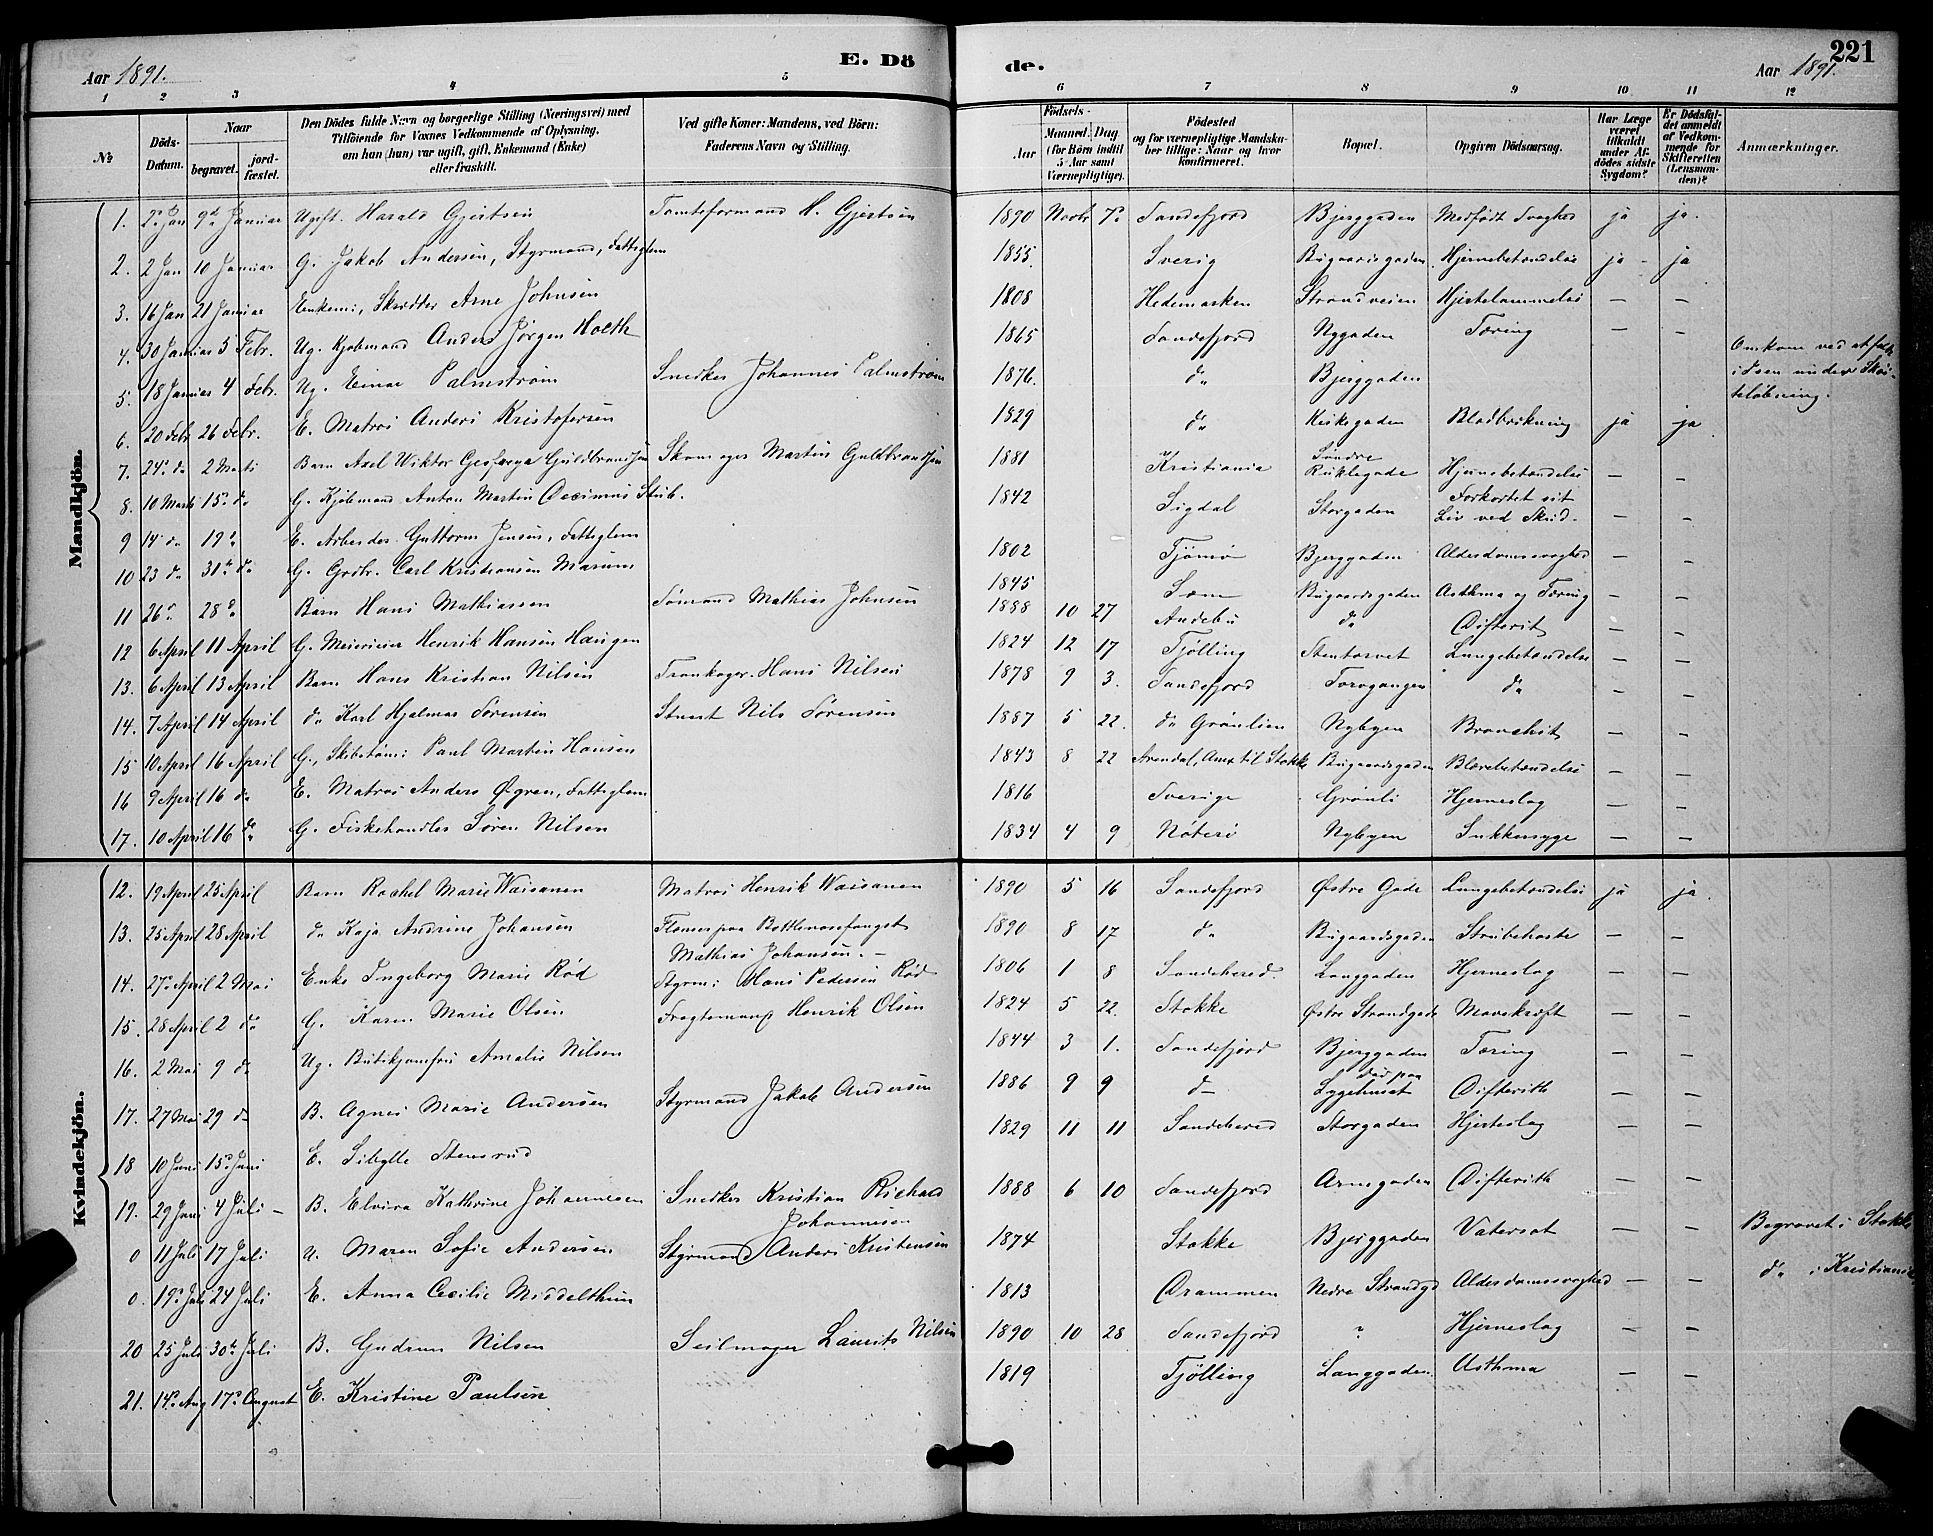 221
Aar 1891.
E. Dö
de.
Aar 1891.
1 2 3 4 5 6 7 8 9 10 11 12
№
Döds-Datum.
Naar
begravet.
jordfæstet.
Den Dödes fulde Navn og borgerlige Stilling (Næringsvei) med
Tilföiende for Voxnes Vedkommende af Oplysning,
om han (hun) var ugift, gift, Enkemand (Enke)
eller fraskilt.
Ved gifte Koner: Mandens, ved Börn:
Faderens Navn og Stilling.
Födsels-
Aar
Maaned. Dag
(for Börn indtil
5 Aar samt
Værnepligtige).
Födested
og for værnepligtige Mandskaber tillige: Naar og hvor konfirmeret.
Bopæl.
Opgiven Dödsaarsag.
Har Læge været tilkaldt under Afdödes sidste Sygdom?
Er Dödsfaldet anmeldt af Vedkommende for Skifteretten (Lensmanden)?
Anmærkninger.
Mandkjön.
1. 2 Jan 9d Januar Ugift. Harald Gjertsen Tomteformand H. Gjertsen 1890 Novbr 7 Sandefjord Bjerggaden Medfødt Svaghed ja ja.
2. 2 Jan 10 Januar G. Jakob Andersen, Styrmand, Fattiglem 1855. Sverig Bugaardsgaden. Hjernebetændelse ja - ja
3. 16 Jan 21 Januar Enkem:, Skrædder Arne Johnsen 1808 Hedemarken Strandveien Hjertelammelse — —
4. 30 Januar 5 Febr. Ug. Kjøbmand Anders Jørgen Holth 1865 Sandefjord Nygaden Tæring — —
5. 18 Januar 4 Febr. Ug. Einar Palmstrøm Snedker Johannes Palmstrøm 1876. do Bjerggaden Omkom ved at falde i Isen under Skøiteløbning.
6. 20 Febr 26 Febr. E. Matros Anders Kristofersen 1829 do Kirkegaden Blodbrækning ja ja
7. 24 do 2 Marts Barn Axel Wiktor Guldbrandsen Skomager Martin Guldbrandsen 1881 Kristiania Søndre Hjernebetændelse — —
8. 10 Marts 15 do G. Kjøbmand Anton Martin Decimus Stub. 1842 Sigdal Storgaden Forkortet sit Liv ved Skud. — —
9 14 do 19 E. Arbeider Guttorm Jensen, Fattiglem 1802 Tjømø Bjerggaden Alderdomssvaghed — —
10 23 do 31 do G. Grdbr. Carl Kristiansen Marum 1845 Sem Bugaardsgaden Asthma og Tæring — —
11 26 28 do Barn Hans Mathiassen Sømand Mathias Johnsen 1888 10 27 Andebu do Difterit — —
12 6 April 11 April G. Meierieier Henrik Hansen Haugen 1824 12 17 Tjølling Stentorvet Lungebetændelse — —
13. 6 April 13 April Barn Hans Kristian Nilsen Trankoger Hans Nilsen 1878 9 3. Sandefjord Torvgangen do — —
14. 7 April 14 April do Karl Hjalmar Sørensen Stuert Nils Sørensen 1887 5 22. do Grønlien Nybyen Bronchit — —
15 10 April 16 April G., Skibstøm: Paul Martin Hansen 1843 8 22 Arendal, Anx til Stokke Bugaardsgaden Blærebetændelse — —
16 9 April 16 do E. Matros Anders Øgren, Fattiglem 1816 Sverige Grønli Hjerneslag — —
17. 10 April 16 do G. Fiskehandler Søren Nilsen 1834 4 9 Nøterø Nybyen Sukkersyge — —
Kvindekjön.
12. 19 April 25 April Barn Rachel Marie Waisanen Matros Henrik Waisanen 1890 5 16 Sandefjord Østre Gade Lungebetændelse ja ja.
13. 25 April 28 April do Kaja Andrine Johansen Flenser paa Bottlenosefangst Mathias Johansen. — 1890 8 17 do Bugaardsgaden Strubehoste — —
14. 27 April 2 Mai Enke Ingeborg Marie Rød Styrm: Hans Pedersen Rød 1806 1 8 Sandehered. Langgaden Hjerneslag — —
15. 28 April 2 do G. Karen Marie Olsen Fragtemand Henrik Olsen 1824 5 22. Stokke Østre Strandgade Mavekræft — —
16. 2 Mai 9 do Ug. Butikjomfru Amalie Nilsen 1844 3 1. Sandefjord Bjerggaden Tæring — —
17. 27 Mai 29 do B. Agnes Marie Andersen Styrmand Jakob Andersen 1886 9 9 do død paa Sygehuset Difterith — —
18 10 Juni 15 Juni E. Sibylle Stensrud 1829 11 11 Sandehered Storgaden Hjerteslag — —
19. 29 Juni 4 Juli — B. Elvira Kathrine Johannesen Snedker Kristian Richard Johannesen 1888 6 10 Sandefjord Arnegaden Difterith — —
0 11 Juli 17 Juli U. Maren Sofie Andersen Styrmand Anders Kristensen 1874 Stokke Bjerggaden Vatersot — — Begravet i Stokke
0. 19 Juli 24 Juli E. Anna Cecilie Middelthun 1813 Drammen Nedre Strandgd Alderdomssvaghed — — do i Kristiania
20 25 Juli 30 Juli B. Gudrun Nilsen Seilmager Laurits Nilsen 1890 10 28 Sandefjord Hjerneslag — —
21. 14 Aug 17 August E. Kristine Paulsen 1819 Tjølling Langgaden. Asthma — —